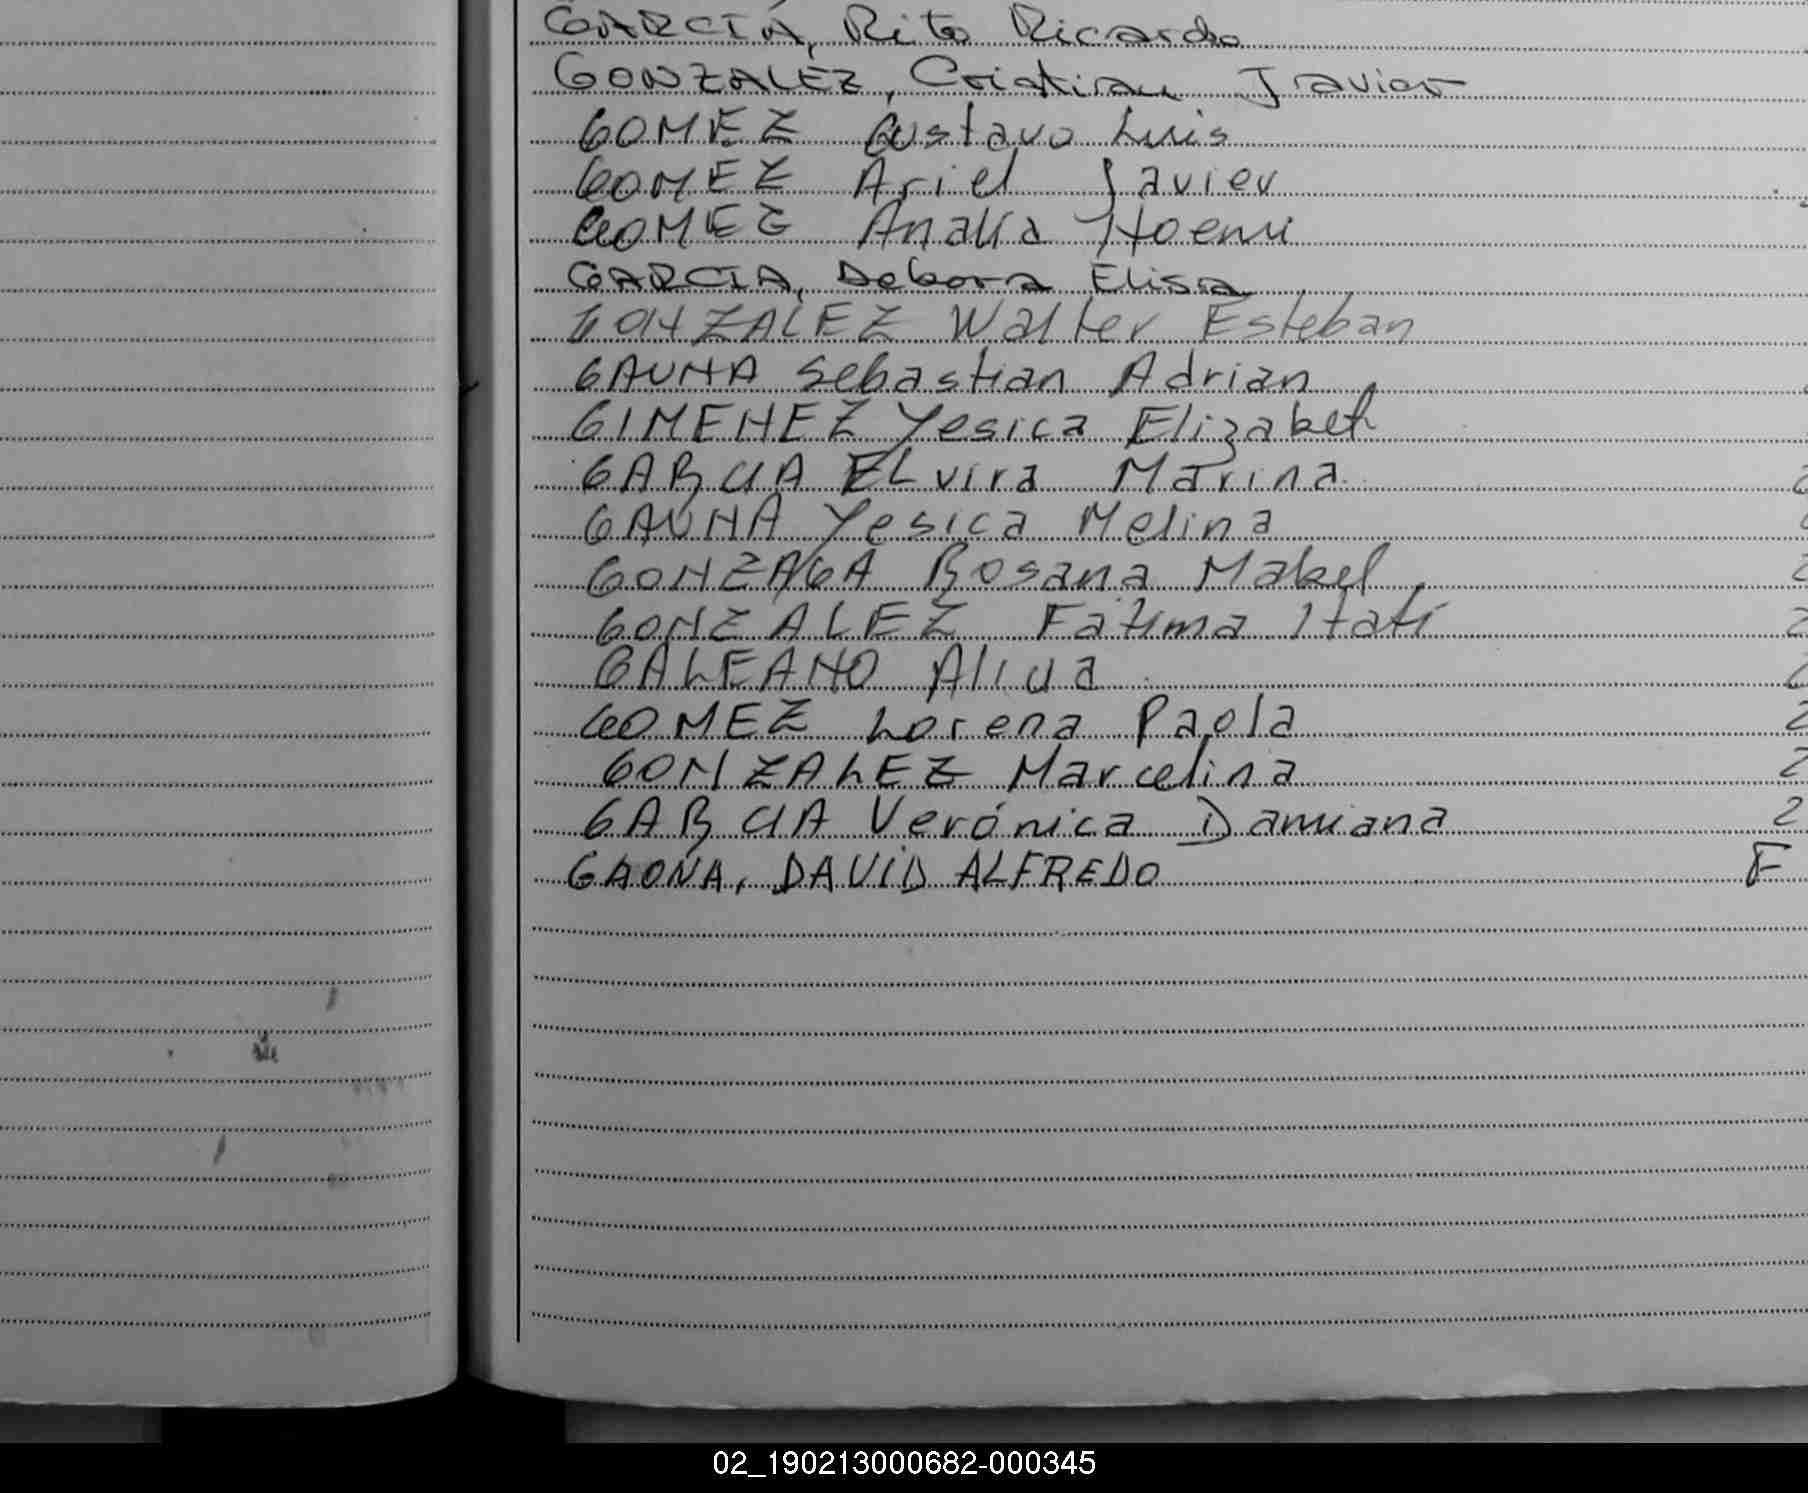 GARCIA, Rito Ricardo
GONZALEZ, Cristian Javier
GOMEZ Gustavo Luis
GOMEZ Ariel Javier
GOMEZ Analía Noemi
GARCIA, Debora Elisa
GONZALEZ Walter Esteban
GAUNA Sebastian Adrian
GIMENEZ Yesica Elizabeth
GARCIA ELvira Marina 2
GAUNA Yesica Melina
GONZAGA Rosana Mabel 2
GONZALEZ Fatima Itatí 2
GALEANO Alicia 2
GOMEZ Lorena Paola 2
GONZALEZ Marcelina 2
GARCIA Verónica Damiana 2
GAONA, DAVID ALFREDO F
02_190213000682-000345